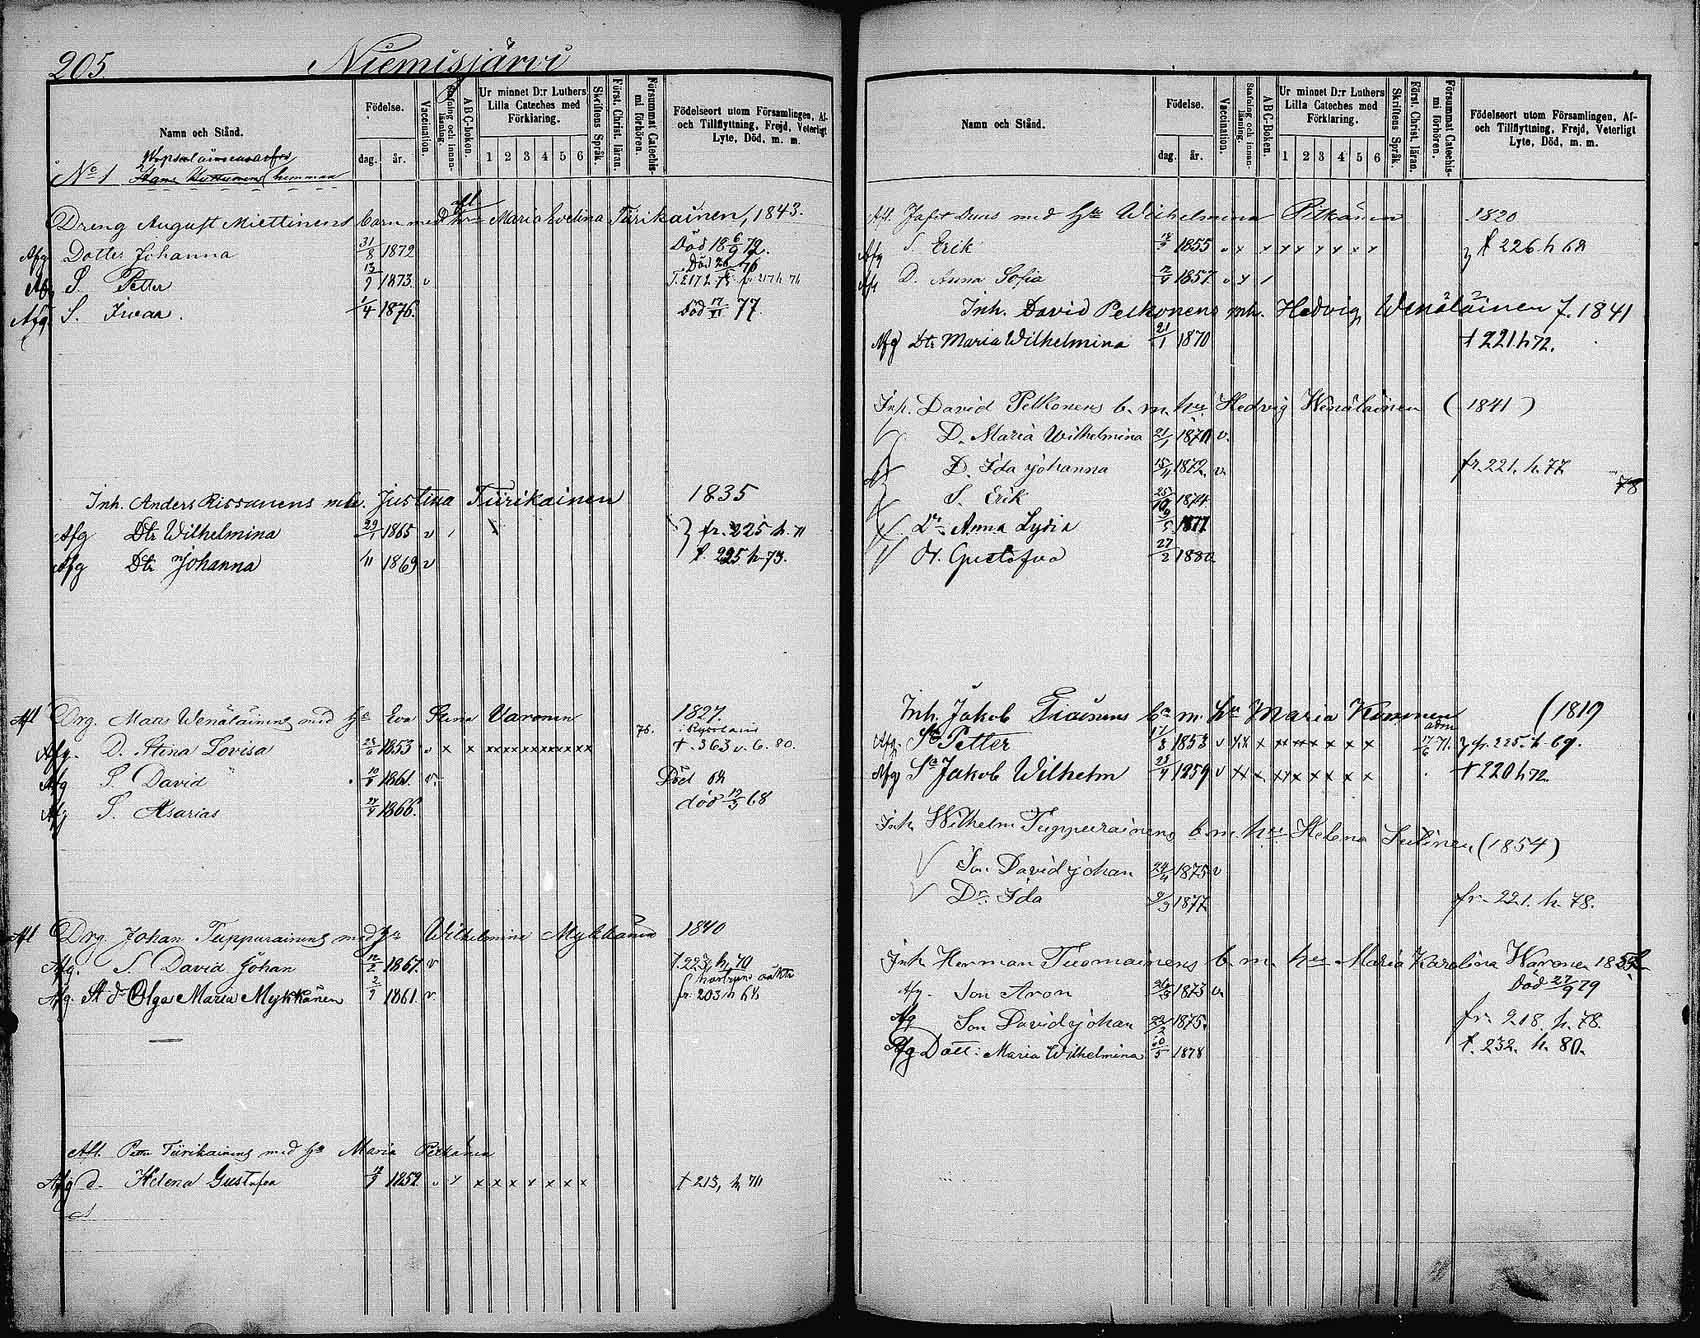 205 Niemisjärvi
Namn och Stånd.
Födelse.
dag. år.
Vaccination.
Stafning och innanläsning.
ABC-boken.
Ur minnet D:r Luthers Lilla Cateches med Förklaring.
1 2 3 4 5 6
Skriftens Språk.
Först. Christ. läran.
Försummat Catechismi förhören.
Födelseort utom Församlingen, Af- och Tillflyttning, Frejd, Veterligt Lyte, Död, m. m.
No 1 hemman
Dreng August Miettinens barn med Maria Evelina Tiirikainen, 1843.
Afg Dotter Johanna 31/8 1872 Död 18 6/9 72.
Afg S. Petter 13/9 1873 v
Afg. S. Ivar. 1/4 1876. Död 17/11 77.
Inh. Anders Rissanens Justina Tiirikainen 1835
Afg Dtr Wilhelmina 29/1 1865 v fr. 225 h. 71
Afg Dtr Johanna 1869 v f. 225 h. 73.
Afl Drg. Mats Wenäläinens med hu Eva Stina Varonen 1827.
Afg. D. Stina Lovisa 1853 v x x xxxxxxxxxx 76. t. 363 v. 6. 80.
Afg S. David 1861. v. Död 68
Afg S. Asarias 1866. död 12/5 68
Afl Drg. Johan Tuppurainens med hu Wilhelmina Mykkänen 1840
Afg. S. David Johan 12/2 1867. v t. 223 h. 70
Afg. Olga Maria Mykkänen 2/9 1861. v. fr. 203 h 68
Afl. Petter Tiirikainens med hu Maria Pitkänen
Afg d. Helena Gustafva 1852 v x x x x x x x x t 213, h 70
Namn och Stånd.
Födelse.
dag. år.
Vaccination.
Stafning och innanläsning.
ABC-Boken.
Ur minnet D:r Luthers Lilla Cateches med Förklaring.
1 2 3 4 5 6
Skriftens Språk.
Först. Christ. läran.
Försummat Catechismi förhören.
Födelseort utom Församlingen, Af- och Tillflyttning, Frejd, Veterligt Lyte, Död, m. m.
Afl. med hu Wilhelmina Pitkänen 1820
Afg S. Erik 1855 v x x x x x x x x } f. 226 h 68
Afg D. Anna Sofia 1857. v x /
Inh. David Pelkonens mh. Hedvig Wenäläinen f. 1841
Afg Dtr Maria Wilhelmina 21/1 1870 t 221 h 72.
Inh. David Pelkonens b. m. hu Hedvig Wenäläinen (1841)
D. Maria Wilhelmina 21/1 1870 v.
D. Ida Johanna 1872. v. fr. 221. h. 77
78
S. Erik 25/10 1874.
Dr. Anna Lydia 9/5 1877
Dr. Gustafva 27/2 1880.
Inh. Jakob b. m. hu Maria Kinnunen (1819
Afg. Sn Petter 1853 v xx x xx x x x x 17/6 71. } fr. 225. h. 69.
Afg. Sn Jakob Wilhelm 1859 v xx x xx x x x x t 220 h 72
Inh. Wilhelm Tuppurainens b. m. hu Helena Lutinen (1854)
Son David Johan 24/4 1875 v
Dr. Ida 9/9 1877. fr. 221. h. 78.
Inh. Herman Tuomainens b. m. hu Maria Karolina Waronen
Afg. Son Aron 1873 v. Död 27/9 79
Afg Son David Johan 1875. fr. 218. h. 78.
Afg Dott: Maria Wilhelmina 1878 t. 232. h. 80.